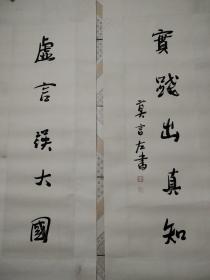 實踐出真知
莫言左書
虛言誤大國